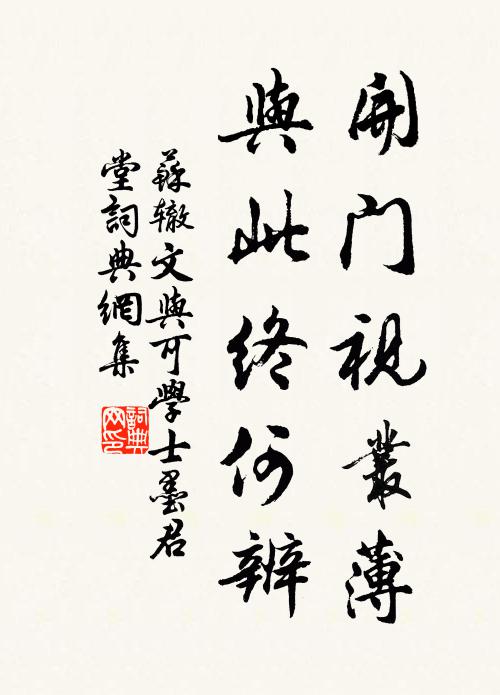 開門視叢薄
與此終何辨
蘇轍文與可學士墨君
堂詞典網集
詞典网印